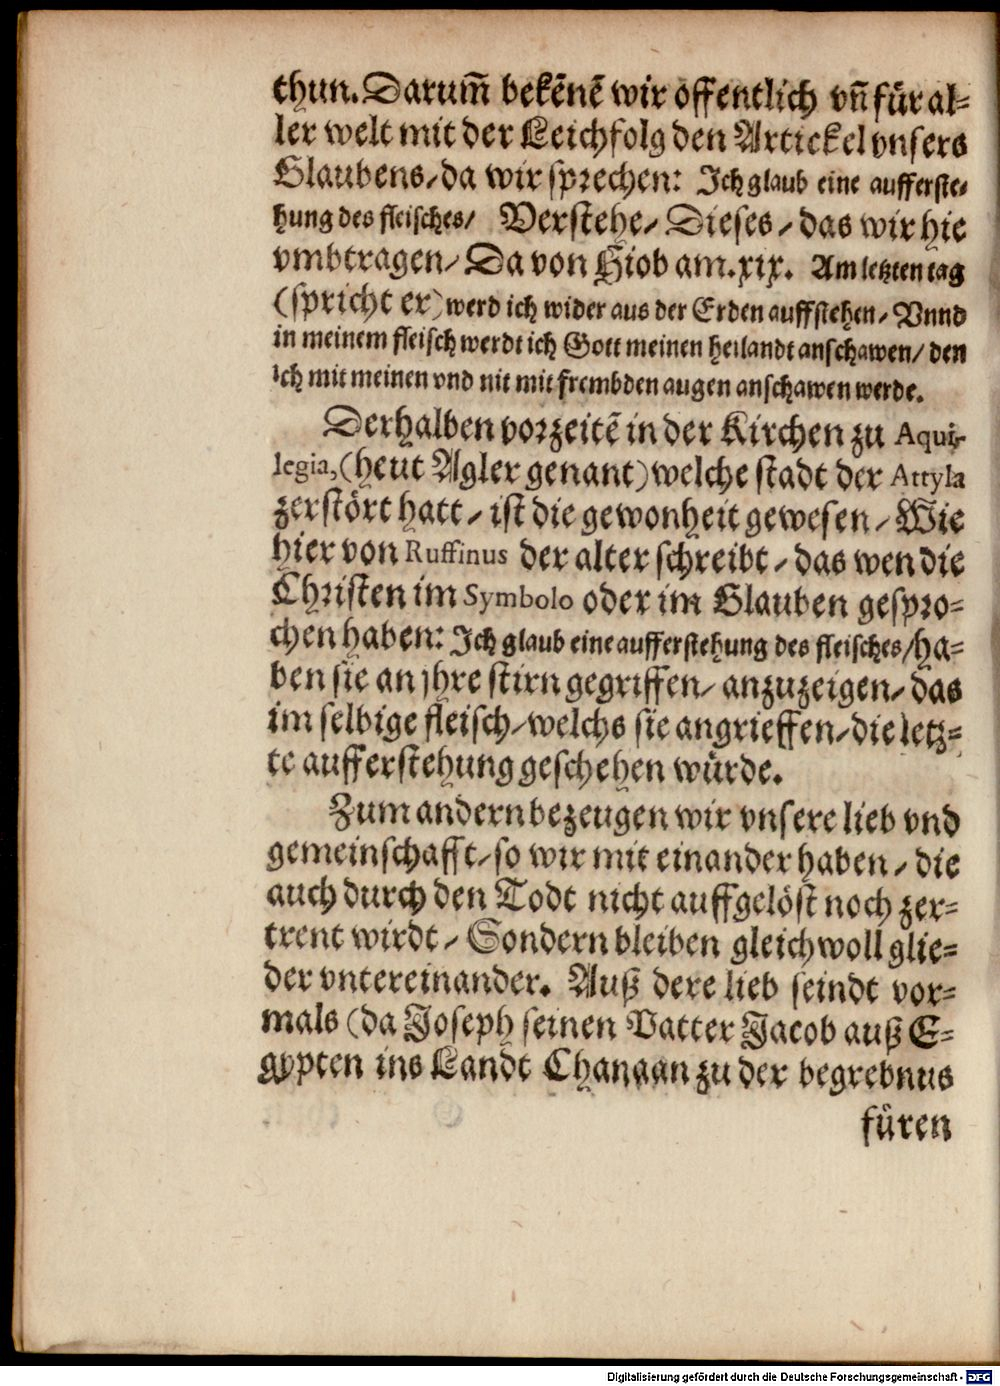 thun. Darum̃ bekẽnẽ wir öffentlich vñ für al-
ler welt mit der Leichfolg den Artickel vnsers
Glaubens/ da wir sprechen: Ich glaub eine aufferste-
hung des fleisches/ Verstehe/ Dieses/ das wir hie
vmbtragen/ Da von Hiob am. xix. Am letzten tag
(spricht er) werd ich wider aus der Erden auffstehen/ Vnnd
in meinem fleisch werdt ich Gott meinen heilandt anschawen/ den
ich mit meinen vnd nit mit frembden augen anschawen werde.
Derhalben vorzeitẽ in der Kirchen zu Aqui-
legia, (heut Agler genant) welche stadt der Attyla
zerstört hatt/ ist die gewonheit gewesen/ Wie
hier von Ruffinus der alter schreibt/ das wen die
Christen im Symbolo oder im Glauben gespro-
chen haben: Ich glaub eine aufferstehung des fleisches/ ha-
ben sie an jhre stirn gegriffen/ anzuzeigen/ das
im selbige fleisch/ welchs sie angrieffen/ die letz-
te aufferstehung geschehen würde.
Zum andern bezeugen wir vnsere lieb vnd
gemeinschafft/ so wir mit einander haben/ die
auch durch den Todt nicht auffgelöst noch zer-
trent wirdt/ Sondern bleiben gleichwoll glie-
der vntereinander. Auß dere lieb seindt vor-
mals (da Joseph seinen Vatter Jacob auß E-
gypten ins Landt Chanaan zu der begrebnus
füren
Digitalisierung gefördert durch die Deutsche Forschungsgemeinschaft - DFG